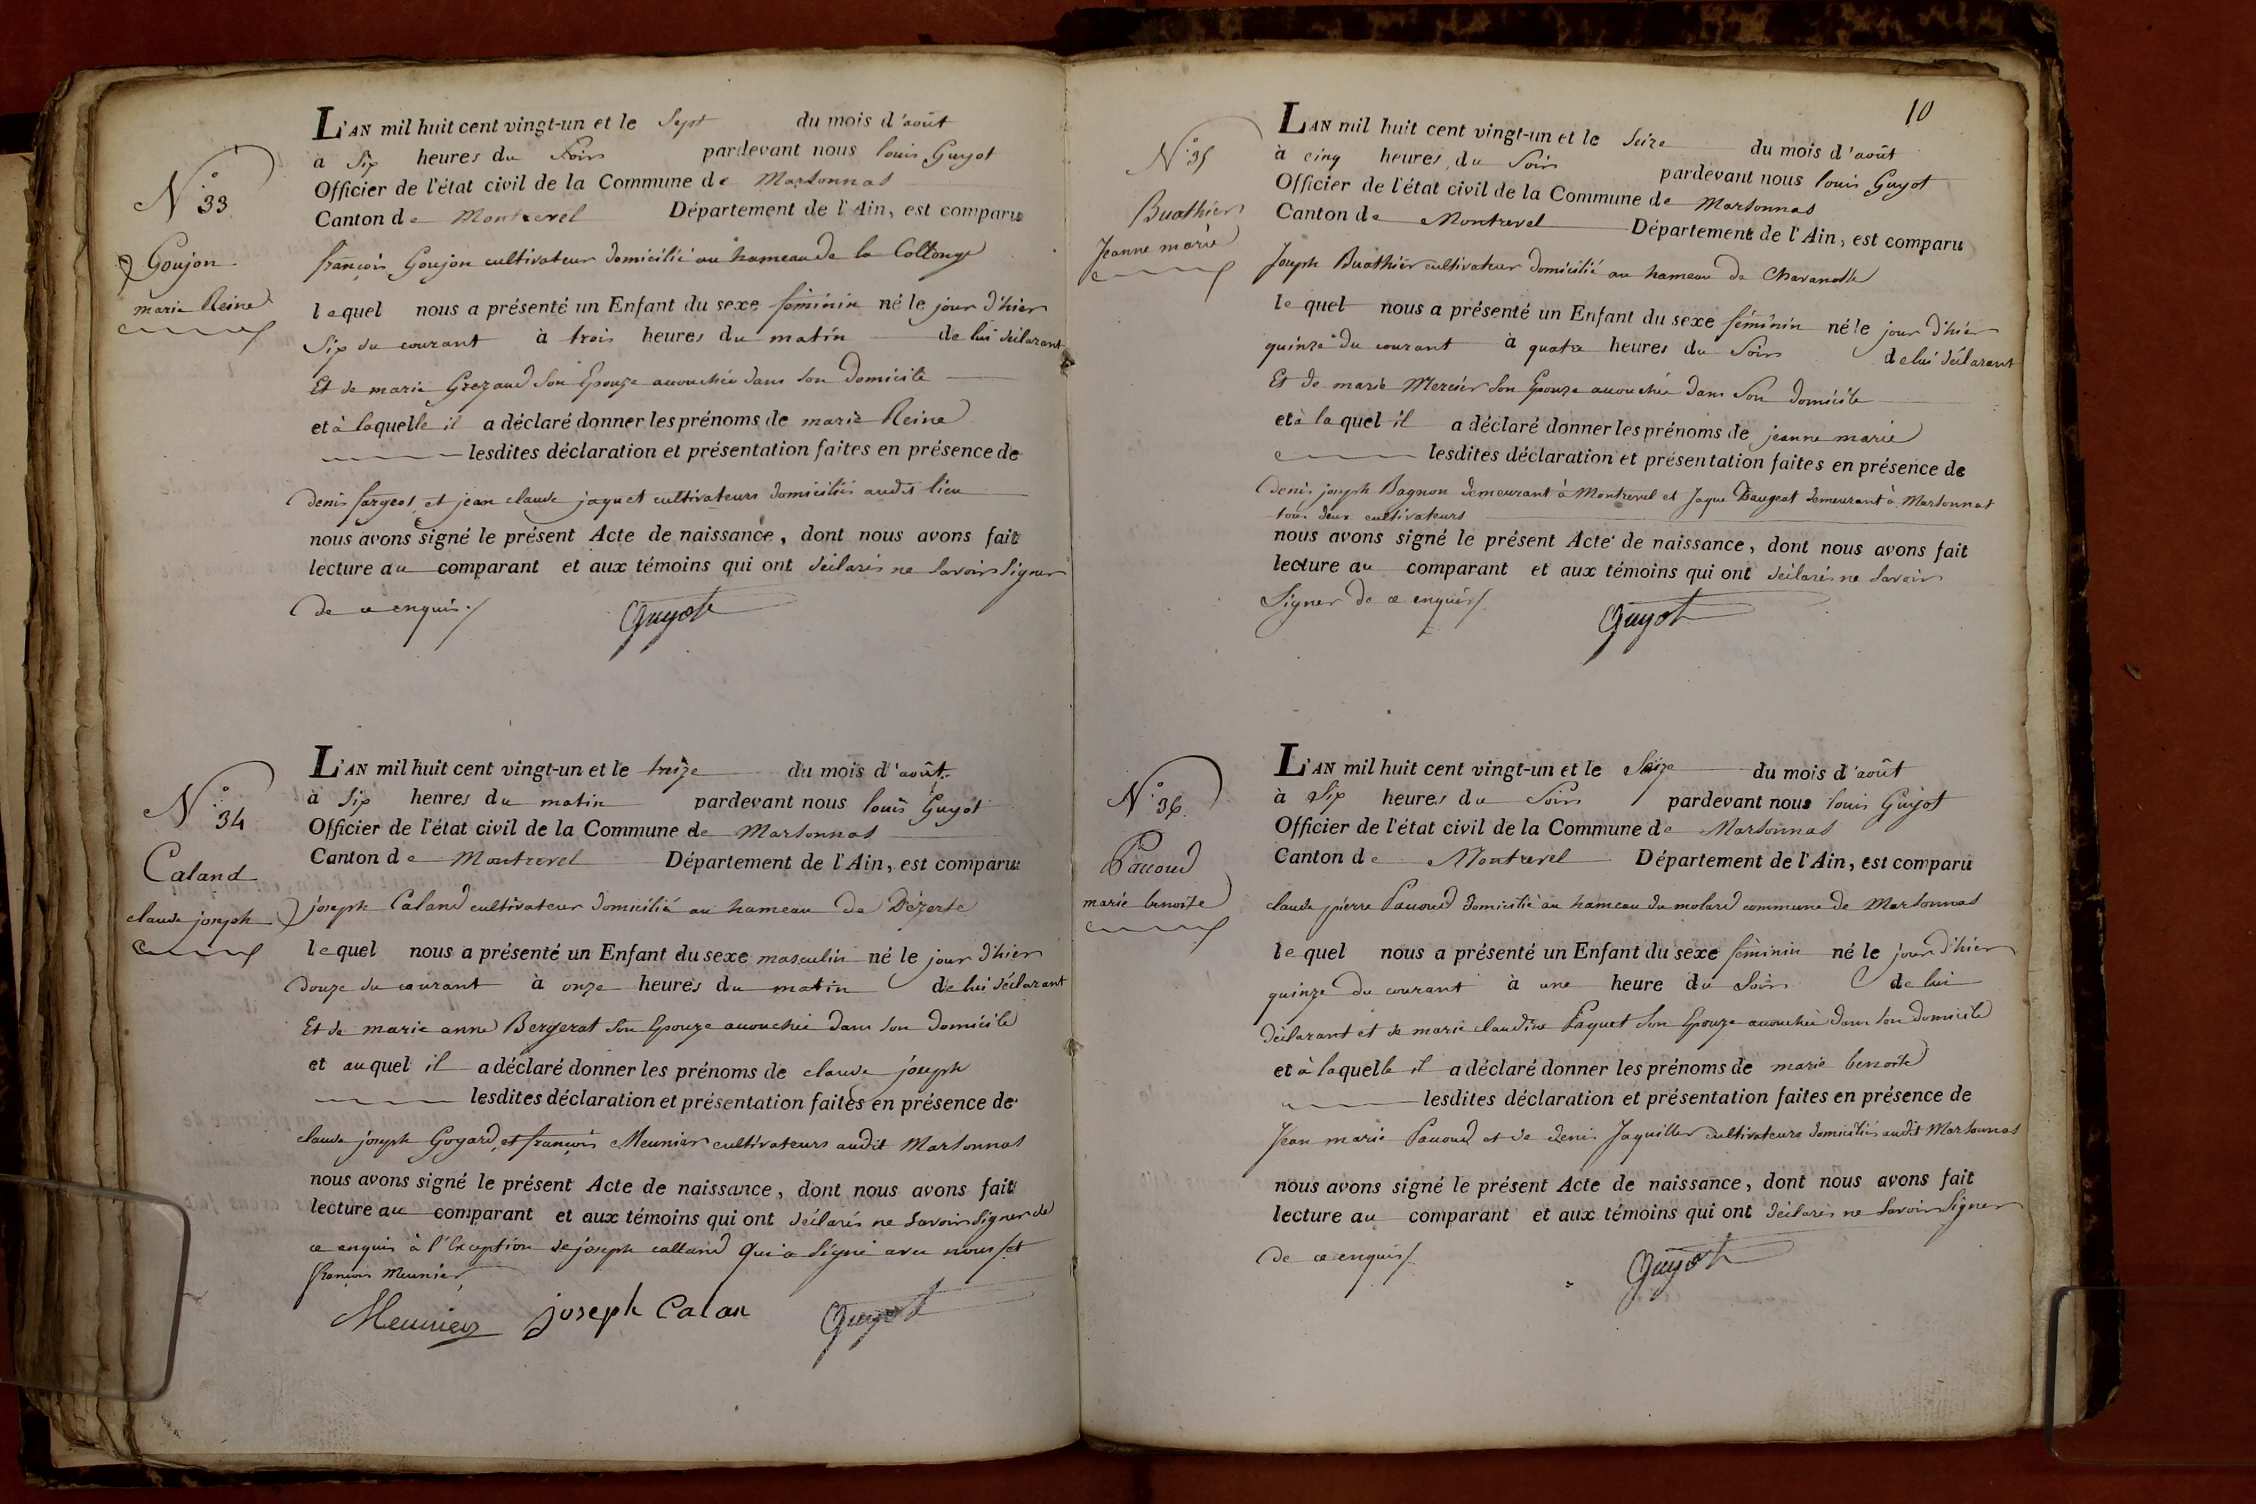 N.° 33
Goujon
marie Reine
L'AN mil huit cent vingt-un et le Sept du mois d'août
à Six heures du Soir pardevant nous louis Guyot
Officier de l'état civil de la Commune de Marsonnas
Canton de Montrevel Département de l'Ain, est comparu
françois Goujon cultivateur domicilié au hameau de la Collonge
lequel nous a présenté un Enfant du sexe féminin né le jour d'hier
Six du courant à trois heures du matin de lui déclarant
Et de marie Grezaud Son Epouze accouchée dans son domicile
et à laquelle il a déclaré donner les prénoms de marie Reine
lesdites déclaration et présentation faites en présence de
denis fargeot et jean claude jaquet cultivateurs domiciliés audit lieu
nous avons signé le présent Acte de naissance, dont nous avons fait
lecture au comparant et aux témoins qui ont déclarés ne Savoir Signer
de ce enquis./
Guyot
N.° 34
Caland
claude joseph
L'AN mil huit cent vingt-un et le treize du mois d'août
à Six heures du matin pardevant nous louis Guyot
Officier de l'état civil de la Commune de Marsonnas
Canton de Montrevel Département de l'Ain, est comparu
joseph Caland cultivateur domicilié au hameau de Dézerte
lequel nous a présenté un Enfant du sexe masculin né le jour d'hier
douze du courant à onze heures du matin de lui déclarant
Et de marie anne Bergerat Son Epouze accouchée dans son domicile
et auquel il a déclaré donner les prénoms de claude joseph
lesdites déclaration et présentation faites en présence de
claude joseph Goyard, et françois Meunier cultivateurs audit Marsonnas
nous avons signé le présent Acte de naissance, dont nous avons fait
lecture au comparant et aux témoins qui ont déclarés ne Savoir Signer de
ce enquis à l'Exception de joseph calland qui a Signé avec nous / et
françois Meunier
Meunier joseph Calan Guyot
10
N.° 35
Buathier
Jeanne marie
L'AN mil huit cent vingt-un et le Seize du mois d'août
à cinq heures du Soir pardevant nous louis Guyot
Officier de l'état civil de la Commune de Marsonnas
Canton de Montrevel Département de l'Ain, est comparu
Joseph Buathier cultivateur domicilié au hameau de Chavanosse
lequel nous a présenté un Enfant du sexe féminin né le jour d'hier
quinze du courant à quatre heures du Soir de lui déclarant
Et de marie Mercier Son Epouze accouchée dans Son domicile
et à laquel il a déclaré donner les prénoms de jeanne marie
lesdites déclaration et présentation faites en présence de
denis joseph Bagnon demeurant à Montrevel et Jaque Daugeat demeurant à Marsonnas
tous deux cultivateurs
nous avons signé le présent Acte de naissance, dont nous avons fait
lecture au comparant et aux témoins qui ont déclarés ne Savoir
Signer de ce enquis/
Guyot
N.° 36
Pauoud
marie benoite
L'AN mil huit cent vingt-un et le Seize du mois d'août
à Six heures du Soir pardevant nous louis Guyot
Officier de l'état civil de la Commune de Marsonnas
Canton de Montrevel Département de l'Ain, est comparu
claude pierre Pauoud domicilié au hameau du molard commune de Marsonnas
lequel nous a présenté un Enfant du sexe féminin né le jour d'hier
quinze du courant à une heure du Soir de lui
déclarant et de marie claudine Paquet Son Epouze accouchée dans Son domicile
et à laquelle il a déclaré donner les prénoms de marie benoite
lesdites déclaration et présentation faites en présence de
Jean marie Pauoud et de denis Jaquiller cultivateurs domiciliés audit Marsonnas
nous avons signé le présent Acte de naissance, dont nous avons fait
lecture au comparant et aux témoins qui ont déclarés ne Savoir Signer
de ce enquis/
Guyot